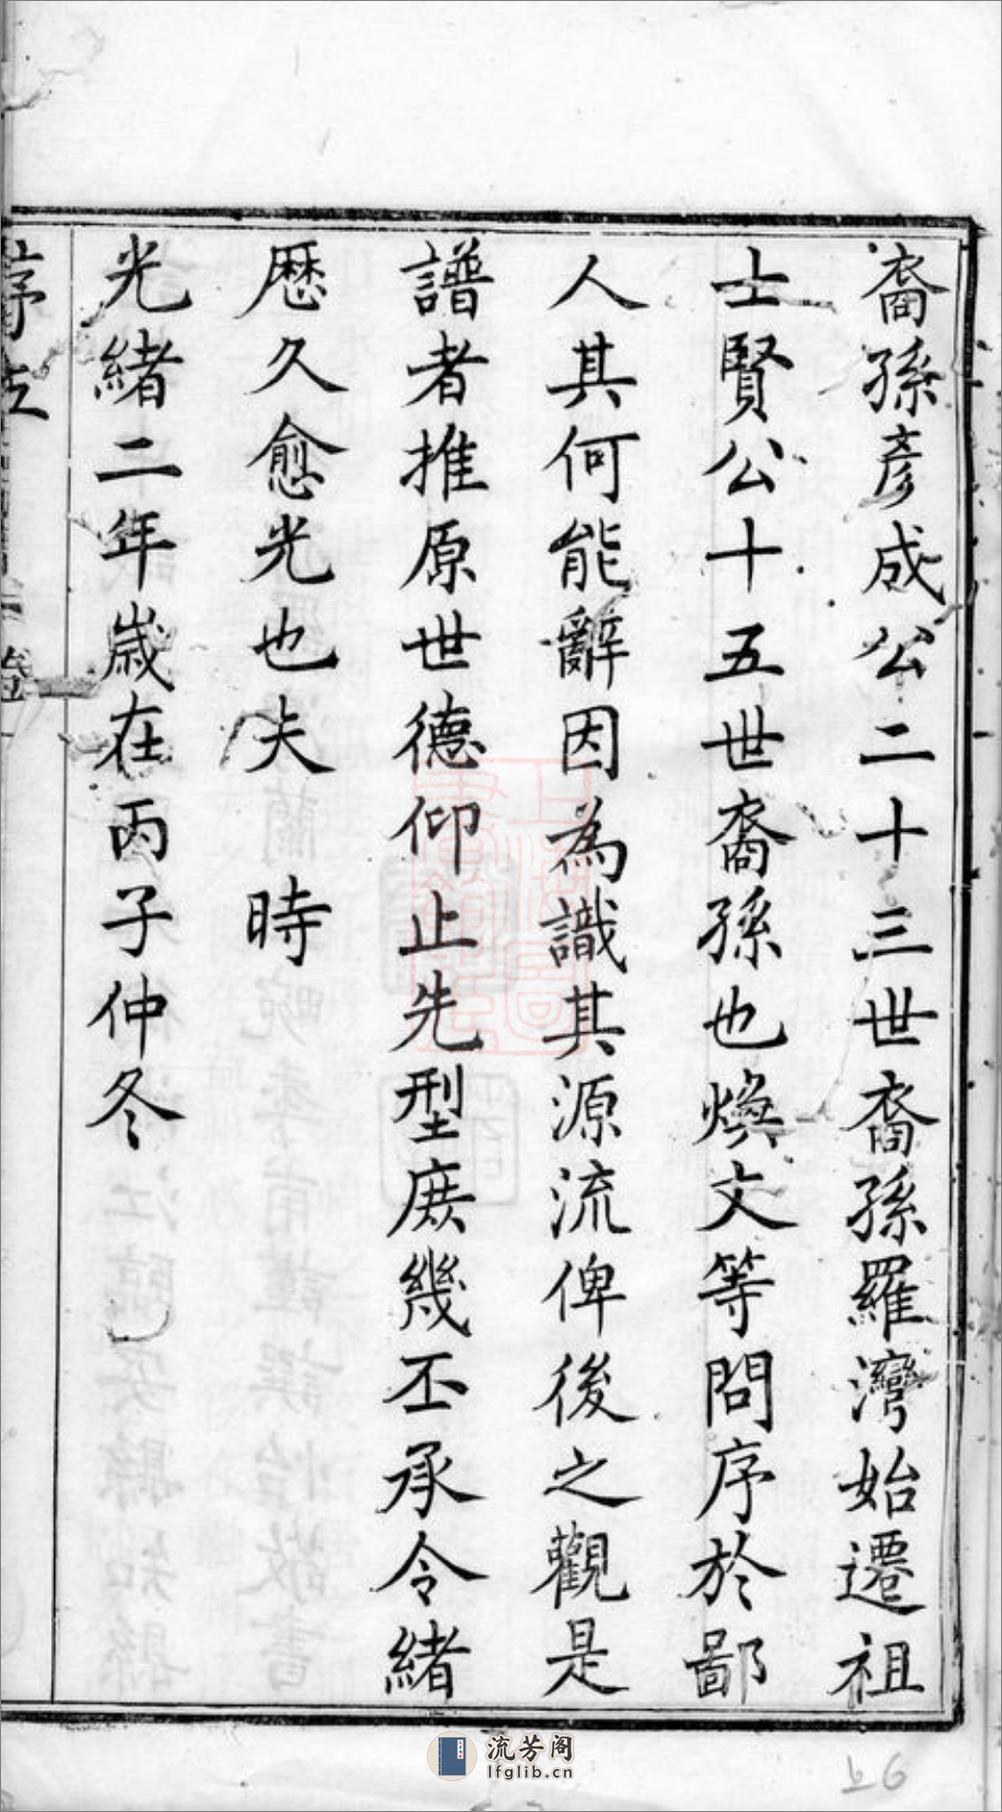 裔孫彥成公二十三世裔孫羅灣始遷祖
士賢公十五世裔孫也煥文等問序於鄙
人其何能辭因為識其源流俾後之觀是
譜者推原世德仰止先型庶幾丕承令緒
歷久愈光也夫　時
光緒二年歲在丙子仲冬
流芳阁
lfglib.cn